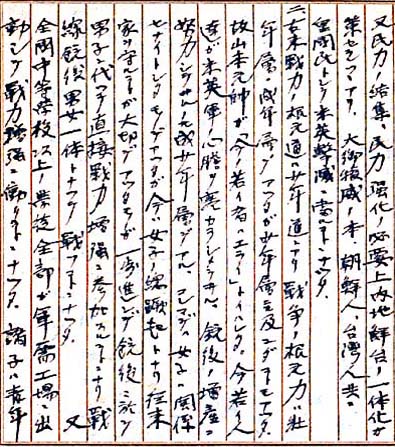 又民力ノ結集、民力ノ強化ノ必要上内地鮮台ノ一体化が
策セラレマシタ。大御稜威ノ本、朝鮮人、台湾人共ニ
皇国民トシテ米英撃滅ニ
二、古来戦力ノ根元 道ハ少年道トナリ 戦争ノ根元力ハ壮
年層ノ成年層デアッタが少年層ニ及ンデキマシタ。
故山本元帥が「今ノ若イ者ハエライ」トイハレタ。今ノ若イ人
達が米英軍ノ心胆ヲ寒カラシメマシタ。銃後ノ増産ニ
努力シテ 少年層デアル。コレマデハ女子ノ関係
セナイトシタモノデスが今ハ女子ノ総蹶起トナリ従来
家ヲ守ルノが大切デアッタモノが一歩進ンデ銃後ニ於テ
男子ニ代ッテ直接戦力増強ニ参加スルトナリ、戦
線銃後男女一体トナッテ戦フコトニナッタ。又
全国中等学校以上ノ学徒全部が軍需工場ニ出
動シテ戦力増強ニ働クコトニナッタ。諸子ハ青年